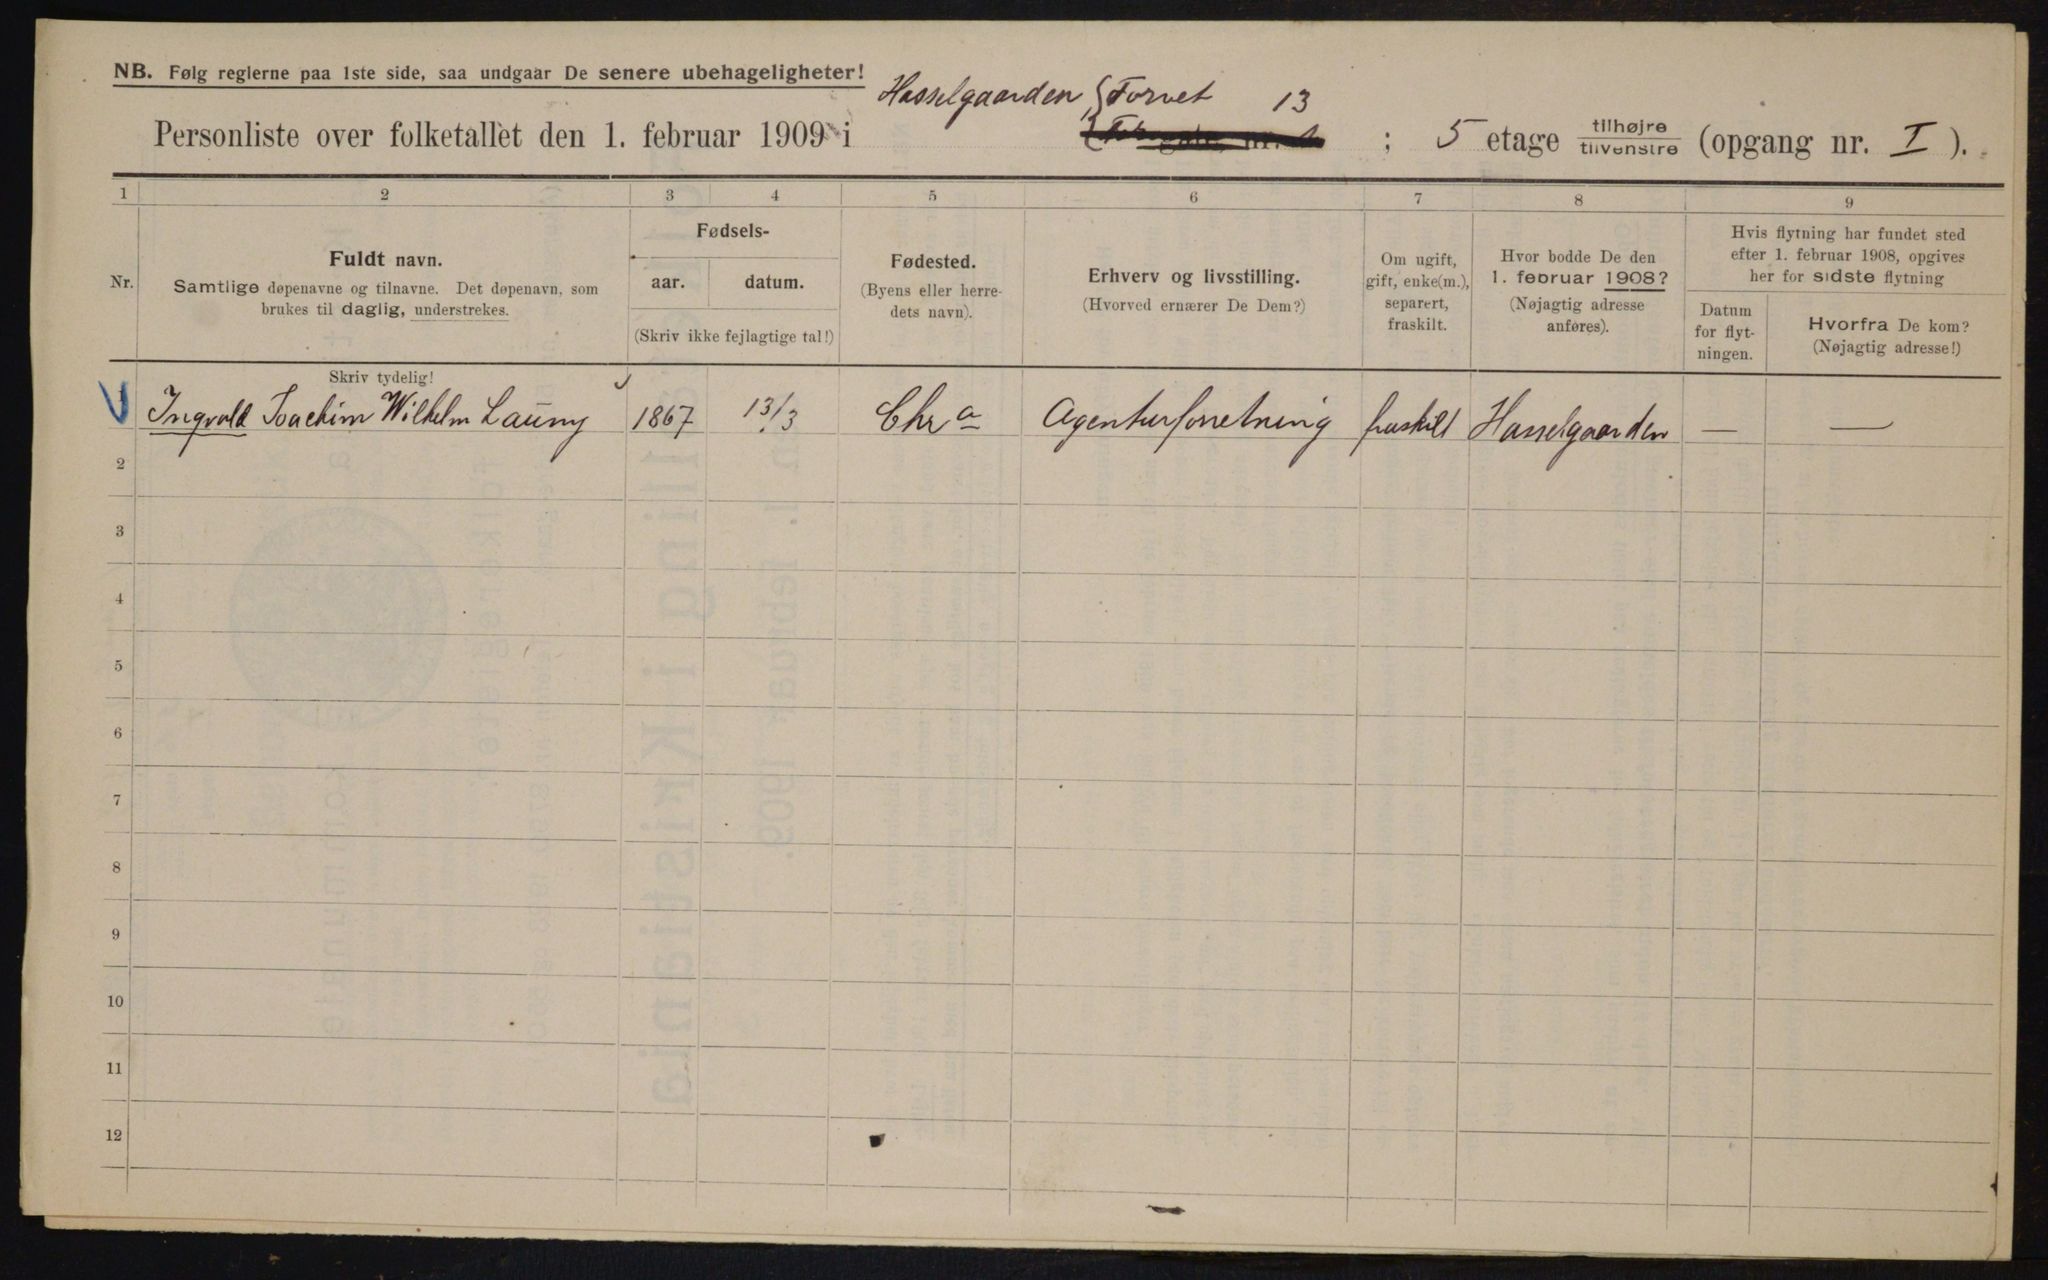 NB. Følg reglerne paa 1ste side, saa undgaar De senere ubehageligheter!
Hasselgaarden { Torvet 13
Personliste over folketallet den 1. februar 1909 i ; 5 etage tilhøjre tilvenstre (opgang nr. I ).
1 2 3 4 5 6 7 8 9
Nr.
Fuldt navn.
Samtlige døpenavne og tilnavne. Det døpenavn, som
brukes til daglig, understrekes.
Skriv tydelig!
Fødsels-
aar. datum.
(Skriv ikke fejlagtige tal!)
Fødested.
(Byens eller herre-
dets navn).
Erhverv og livsstilling.
(Hvorved ernærer De Dem?)
Om ugift,
gift, enke(m.),
separert,
fraskilt.
Hvor bodde De den
1. februar 1908?
(Nøjagtig adresse
anføres).
Hvis flytning har fundet sted
efter 1. februar 1908, opgives
her for sidste flytning
Datum
for flyt-
ningen.
Hvorfra De kom?
(Nøjagtig adresse!)
1 Ingvald Joachim Wilhelm Launy 1867 13/3 Chr a Agenturforretning fraskilt Hasselgaarden — —
2
3
4
5
6
7
8
9
10
11
12